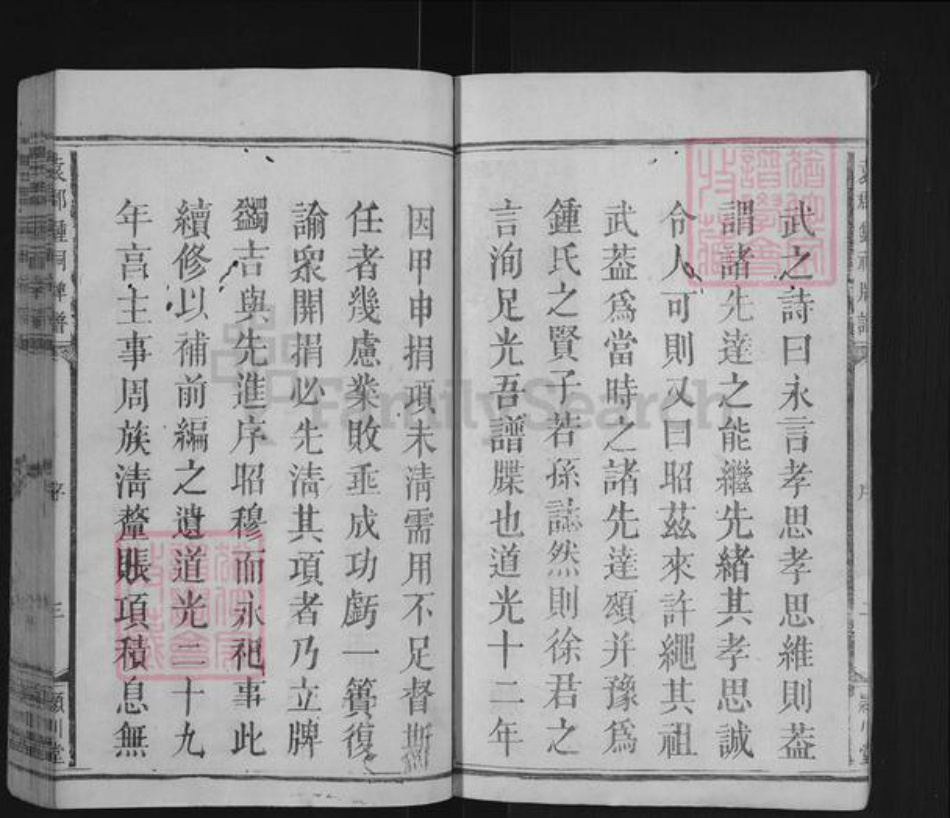 武之詩曰永言孝思孝思維則葢
謂諸先達之能繼先緒其孝思誠
令人可則又曰昭茲來許繩其祖
武葢爲當時之諸先達頌并豫爲
鍾氏之賢子若孫誌然則徐君之
言洵足光吾譜牒也道光十二年
因甲申捐項未清需用不足督斯
任者幾慮業敗垂成功虧一簣復
諭衆開捐必先清其項者乃立牌
蠲吉與先進序昭穆而永祀事此
續修以補前編之遺道光二十九
年高主事周族清釐賬項積息無
袁郡鍾祠牌譜
序
三
潁川堂
FamilySearch